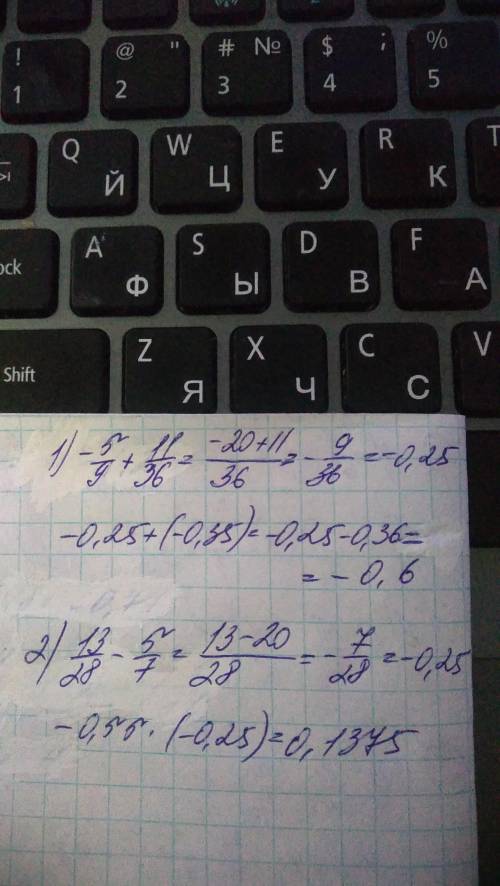 ! @ " # № $ ; %
1 2 3 4 5
Q W E R T
Й Ц У К
ock A S D F
Ф Ы В А
Shift Z X C V
Я Ч С
1) -5/9 + 11/36 = -20+11/36 = -9/36 = -0,25
-0,25+(-0,35)=-0,25-0,36=
=-0,6
2) 13/28 - 5/7 = 13-20/28 = -7/28 = -0,25
-0,55·(-0,25)=0,1375